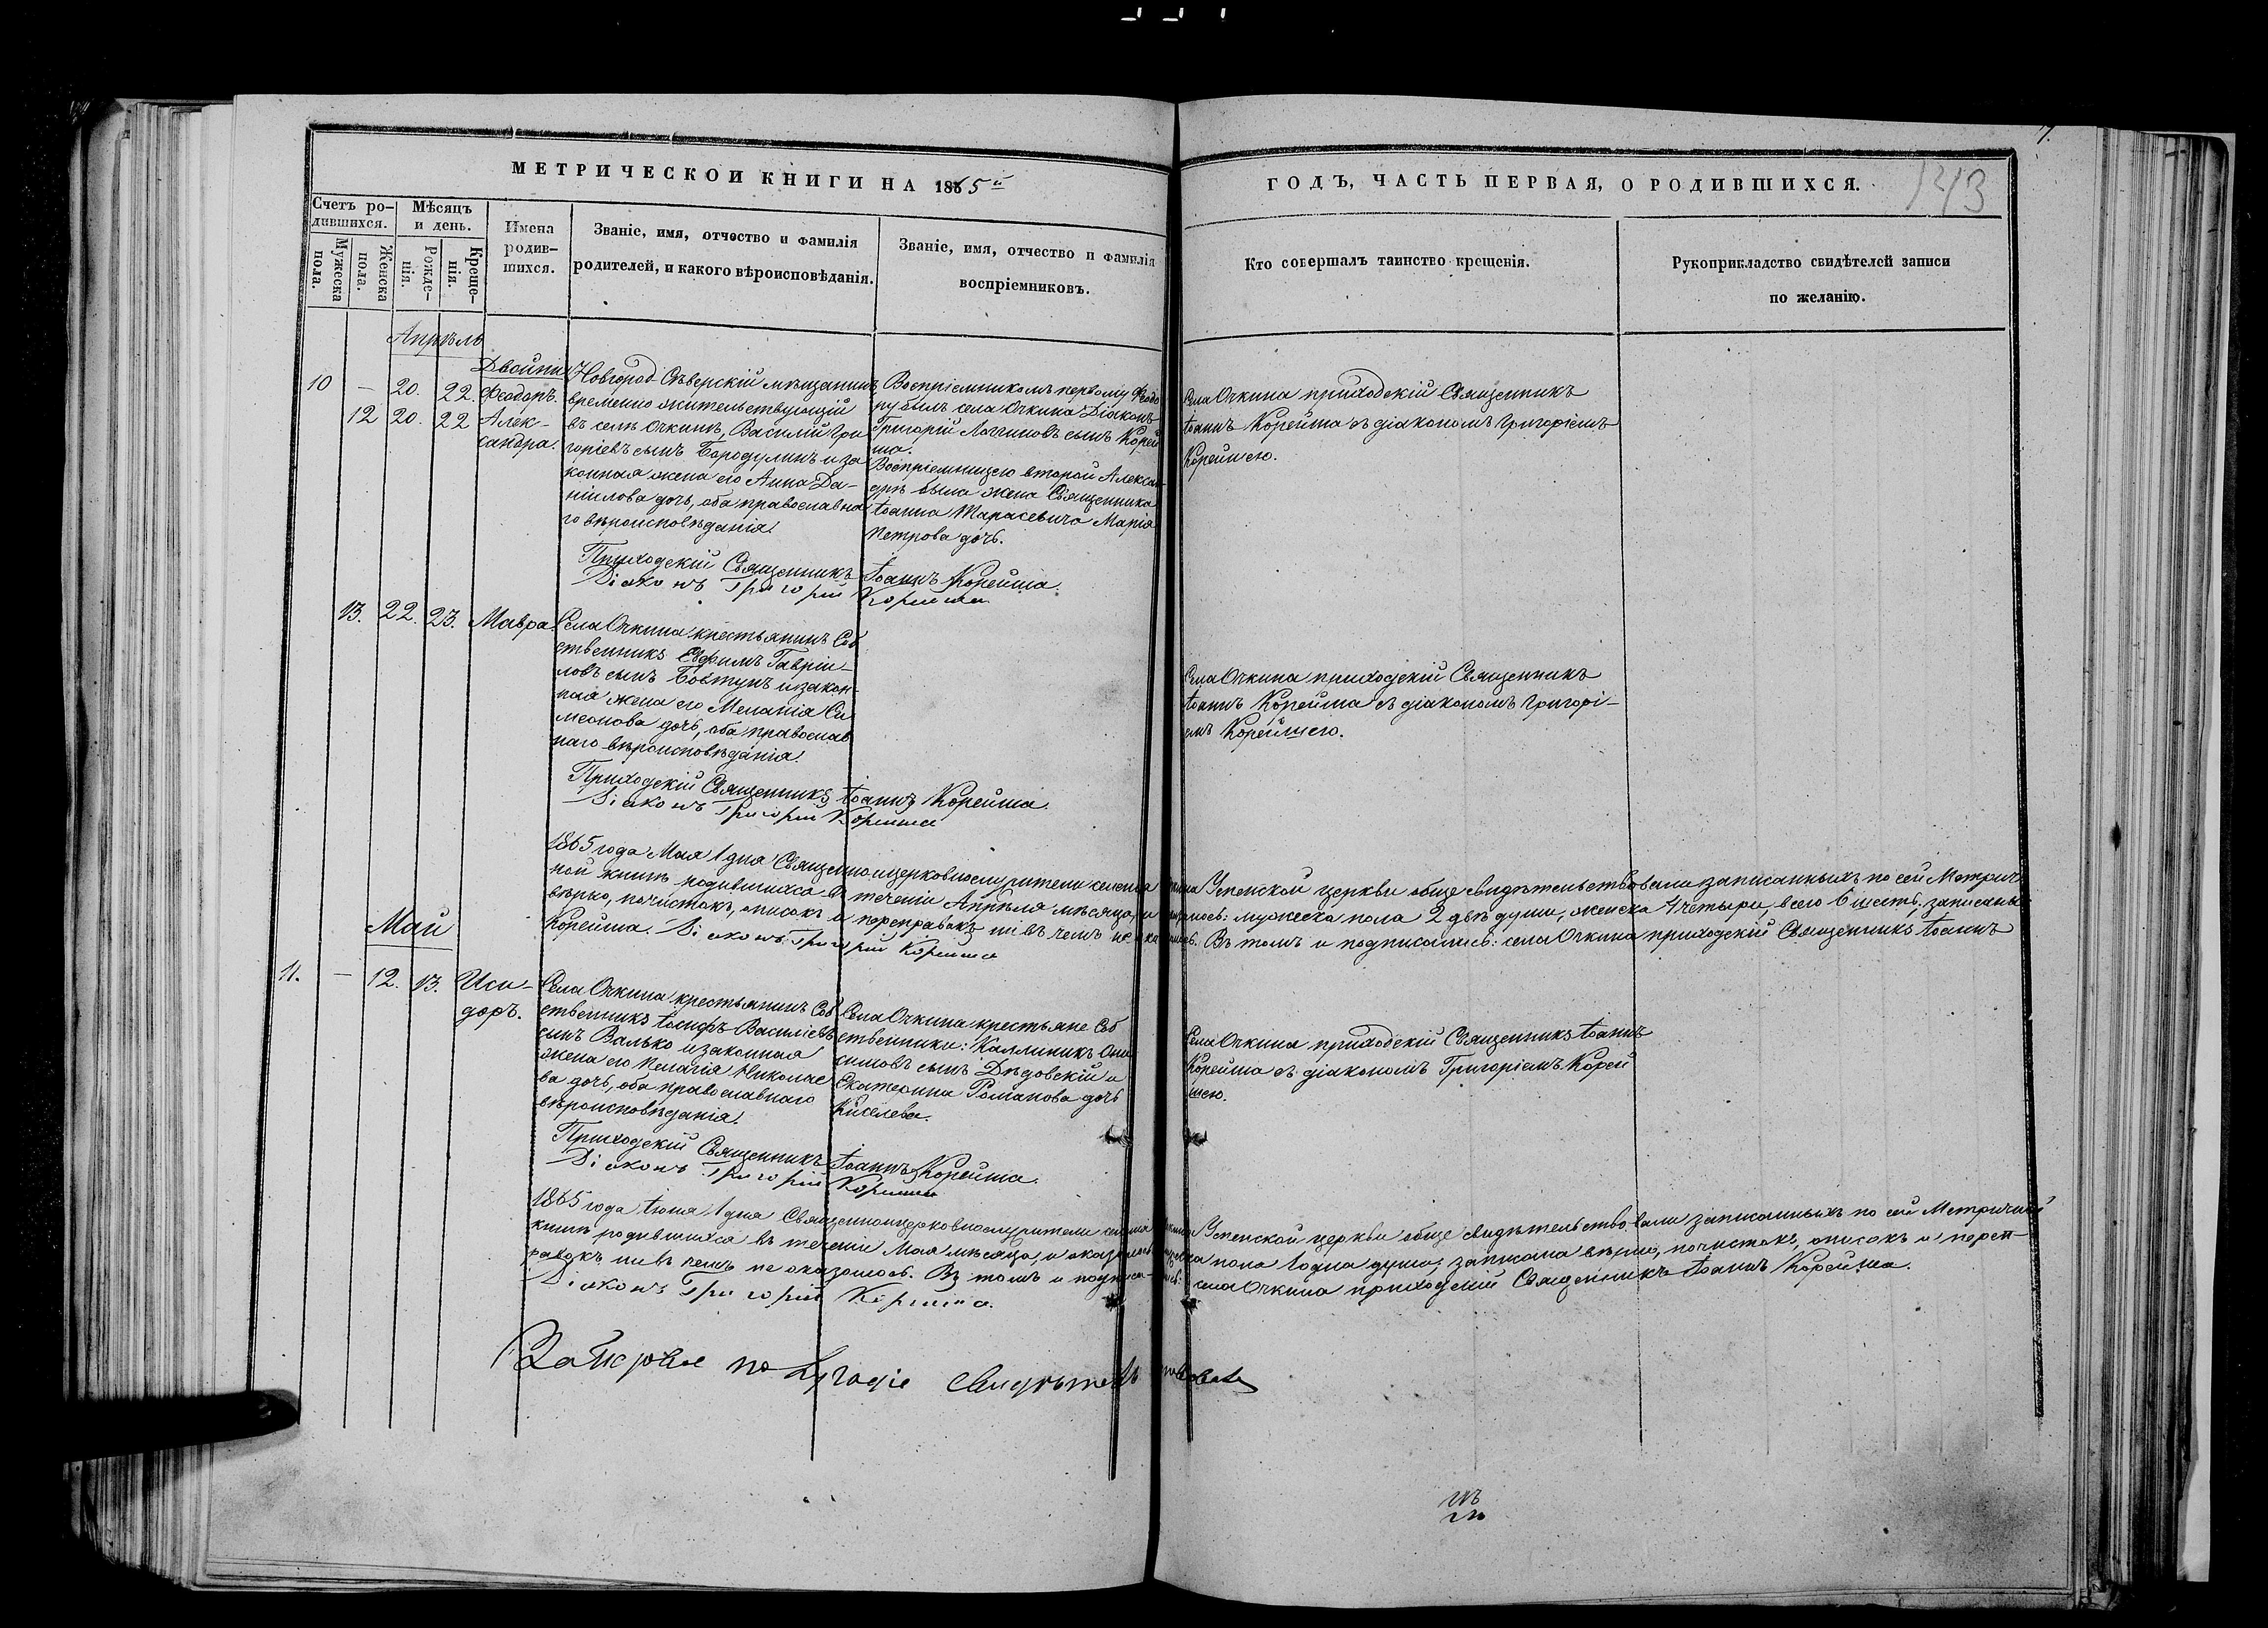 7.
143
МЕТРИЧЕСКОЙ КНИГИ НА 1865й
ГОДЪ, ЧАСТЬ ПЕРВАЯ, О РОДИВШИХСЯ.
Счетъ ро-
дившихся.
Мужеска
пола.
Женска
пола.
Мѣсяцъ
и день.
Рожде-
нія.
Креще-
нія.
Имена
родив-
шихся.
Званіе, имя, отчество и фамилія
родителей, и какого вѣроисповѣданія.
Званіе, имя, отчество и фамилія
воспріемниковъ.
Кто совершалъ таинство крещенія.
Рукоприкладство свидѣтелей записи
по желанію.
Апрѣль
Двойни
10 — 20. 22. Ѳеодоръ.
12 20. 22 Алек-
сандра.
Новгород-Сѣверскій мѣщанинъ
временно жительствующій
въ селѣ Очкинѣ, Василій Гри
горіевъ сынъ Бородулинъ и за
конная жена его Анна Да-
ніилова дочь, оба православна
го вѣроисповѣданія.
Воспріемникомъ первому Ѳеодо
ру былъ села Очкина Діаконъ
Григорій Логгиновъ сынъ Корей
ша.
Воспріемницею второй Алексан-
дрѣ была жена Священника
Іоанна Тарасевича Марія
Петрова дочь.
Села Очкина приходскій Священникъ
Іоаннъ Корейша съ діакономъ Григоріемъ
Корейшею.
Приходскій Священникъ Іоаннъ Корейша.
Діаконъ Григорій Корейша
13. 22. 23. Мавра.
Села Очкина крестьянинъ Соб
ственникъ Евфимъ Гавріи-
ловъ сынъ Бовтунъ и закон-
ная жена его Меланія Си
меонова дочь, оба православ
наго вѣроисповѣданія.
Села Очкина приходскій Священникъ
Іоаннъ Корейша съ діакономъ Григорі-
емъ Корейшею.
Приходскій Священникъ Іоаннъ Корейша.
Діаконъ Григорій Корейша
1865 года Мая 1 дня Священноицерковнослужители селенія Очкина Успенской церкви обще свидѣтельствовали записанныхъ по сей Метрич
ной книгѣ родившихся въ теченіи Апрѣля мѣсяца, и оказалось: мужеска пола 2 двѣ души, женска 4 четыри, всего 6 шесть, записаны
вѣрно, почистокъ, описокъ и переправокъ ни въ чемъ не оказалось. Въ томъ и подписались: села Очкина приходскій Священникъ Іоаннъ
Корейша. Діаконъ Григорій Корейша
Май
11. — 12. 13. Иси-
доръ.
Села Очкина крестьянинъ Соб
ственникъ Іосифъ Василіевъ
сынъ Валько и законная
жена его Пелагія Николае
ва дочь, оба православнаго
вѣроисповѣданія.
Села Очкина крестьяне Соб
ственники: Каллиникъ Они
симовъ сынъ Дѣдовскій и
Екатерина Романова дочь
Киселева.
Села Очкина приходскій Священникъ Іоаннъ
Корейша съ діакономъ Григоріемъ Корей
шею.
Приходскій Священникъ Іоаннъ Корейша.
Діаконъ Григорій Корейша
1865 года Іюня 1 дня Священноицерковнослужители селенія Очкина Успенской церкви обще свидѣтельствовали записанныхъ по сей Метричной
книгѣ родившихся въ теченіи Мая мѣсяца, и оказалось мужеска пола 1 одна душа; записана вѣрно, почистокъ, описокъ и переп-
равокъ ни въ чемъ не оказалось. Въ томъ и подписались: села Очкина приходскій Священникъ Іоаннъ Корейша.
Діаконъ Григорій Корейша.
свидѣтельствовалъ